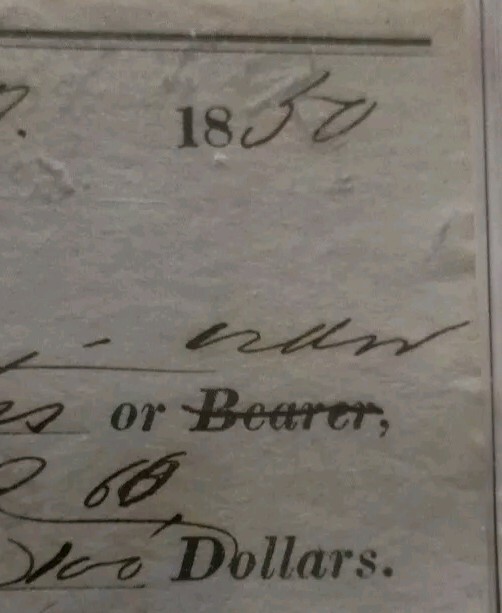 1850
order
or Bearer,
60
100 Dollars.